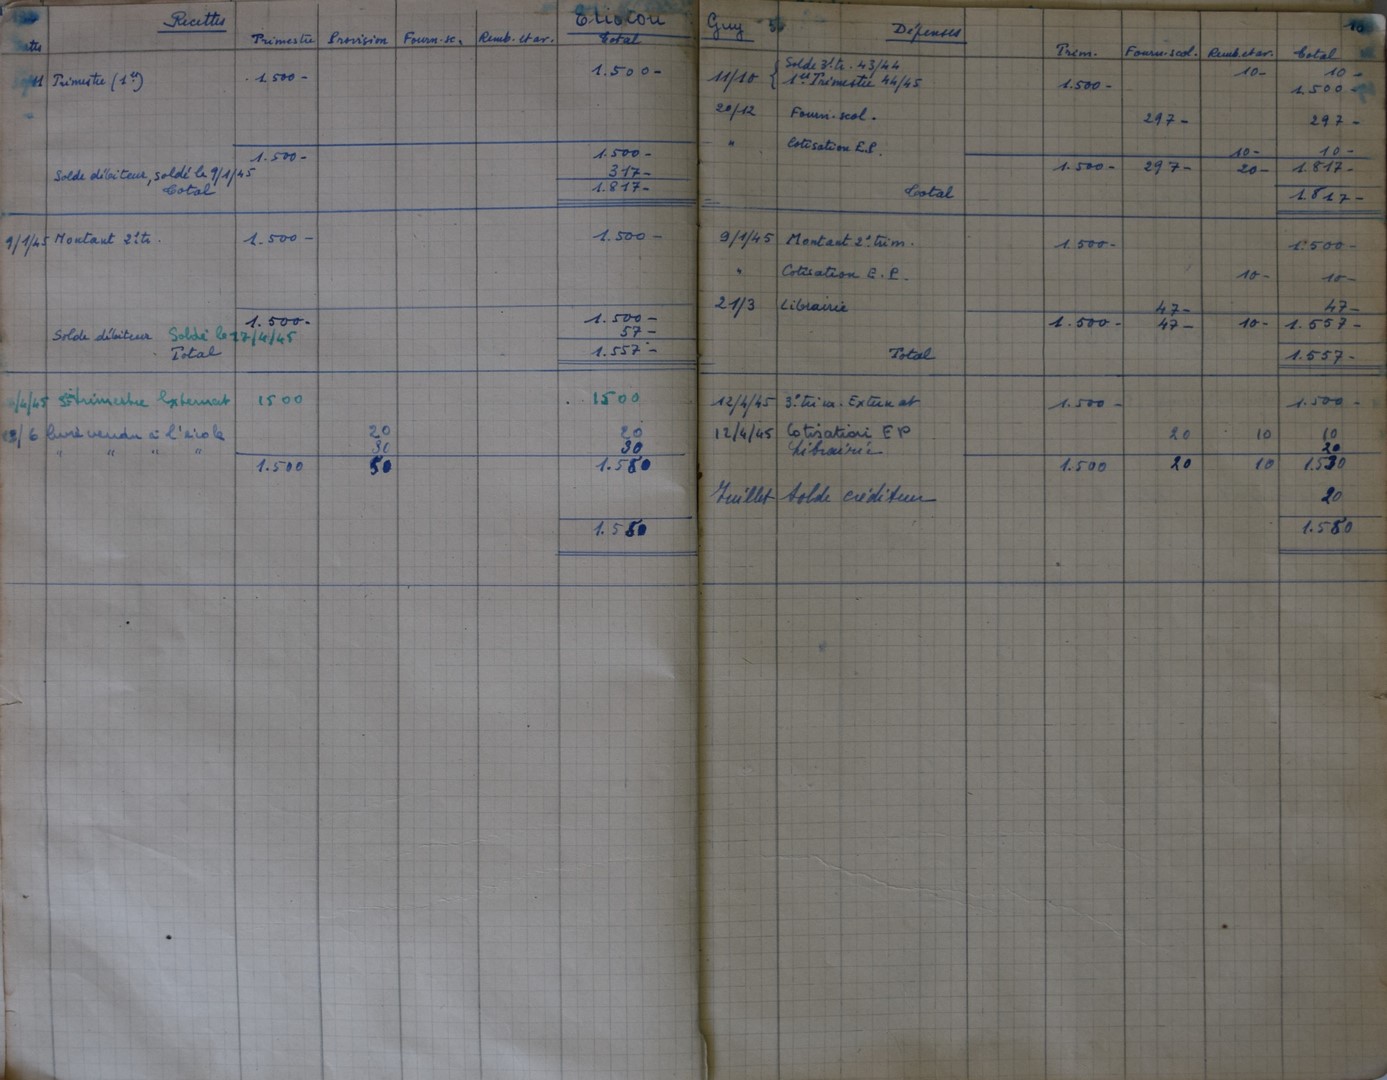 Recettes
Trimestre Provision Fourn. sc. Remb. et av. Total
Trimestre (1er) 1.500- 1.500-
1.500- 1.500-
Solde débiteur, soldé le 9/1/45 317-
Total 1.817-
9/1/45 Montant 2e tr. 1.500- 1.500-
1.500- 1.500-
Solde débiteur Soldé le 17/4/45 57-
Total 1.557-
/4/45 3e trimestre Externat 1500 1500
/6 livre vendu à l'école 20 20
" " " " 30 30
1.500 50 1.550
1.550
Guy
Dépenses
Trim. Fourn. scol. Remb. et av. Total
11/10 { Solde 3e tr. 43/44 10- 10-
1er Trimestre 44/45 1.500- 1.500-
20/12 Fourn. scol. 297- 297-
" Cotisation E.P. 10- 10-
1.500- 297- 20- 1.817-
Total 1.817-
9/1/45 Montant 2e trim. 1.500- 1.500-
" Cotisation E.P. 10- 10-
21/3 Librairie 47- 47-
1.500- 47- 10- 1.557-
Total 1.557-
12/4/45 3e trim. Externat 1.500- 1.500-
12/4/45 Cotisation EP 20 10 10
Librairie 20
1.500 20 10 1.530
Juillet Solde créditeur 20
1.550